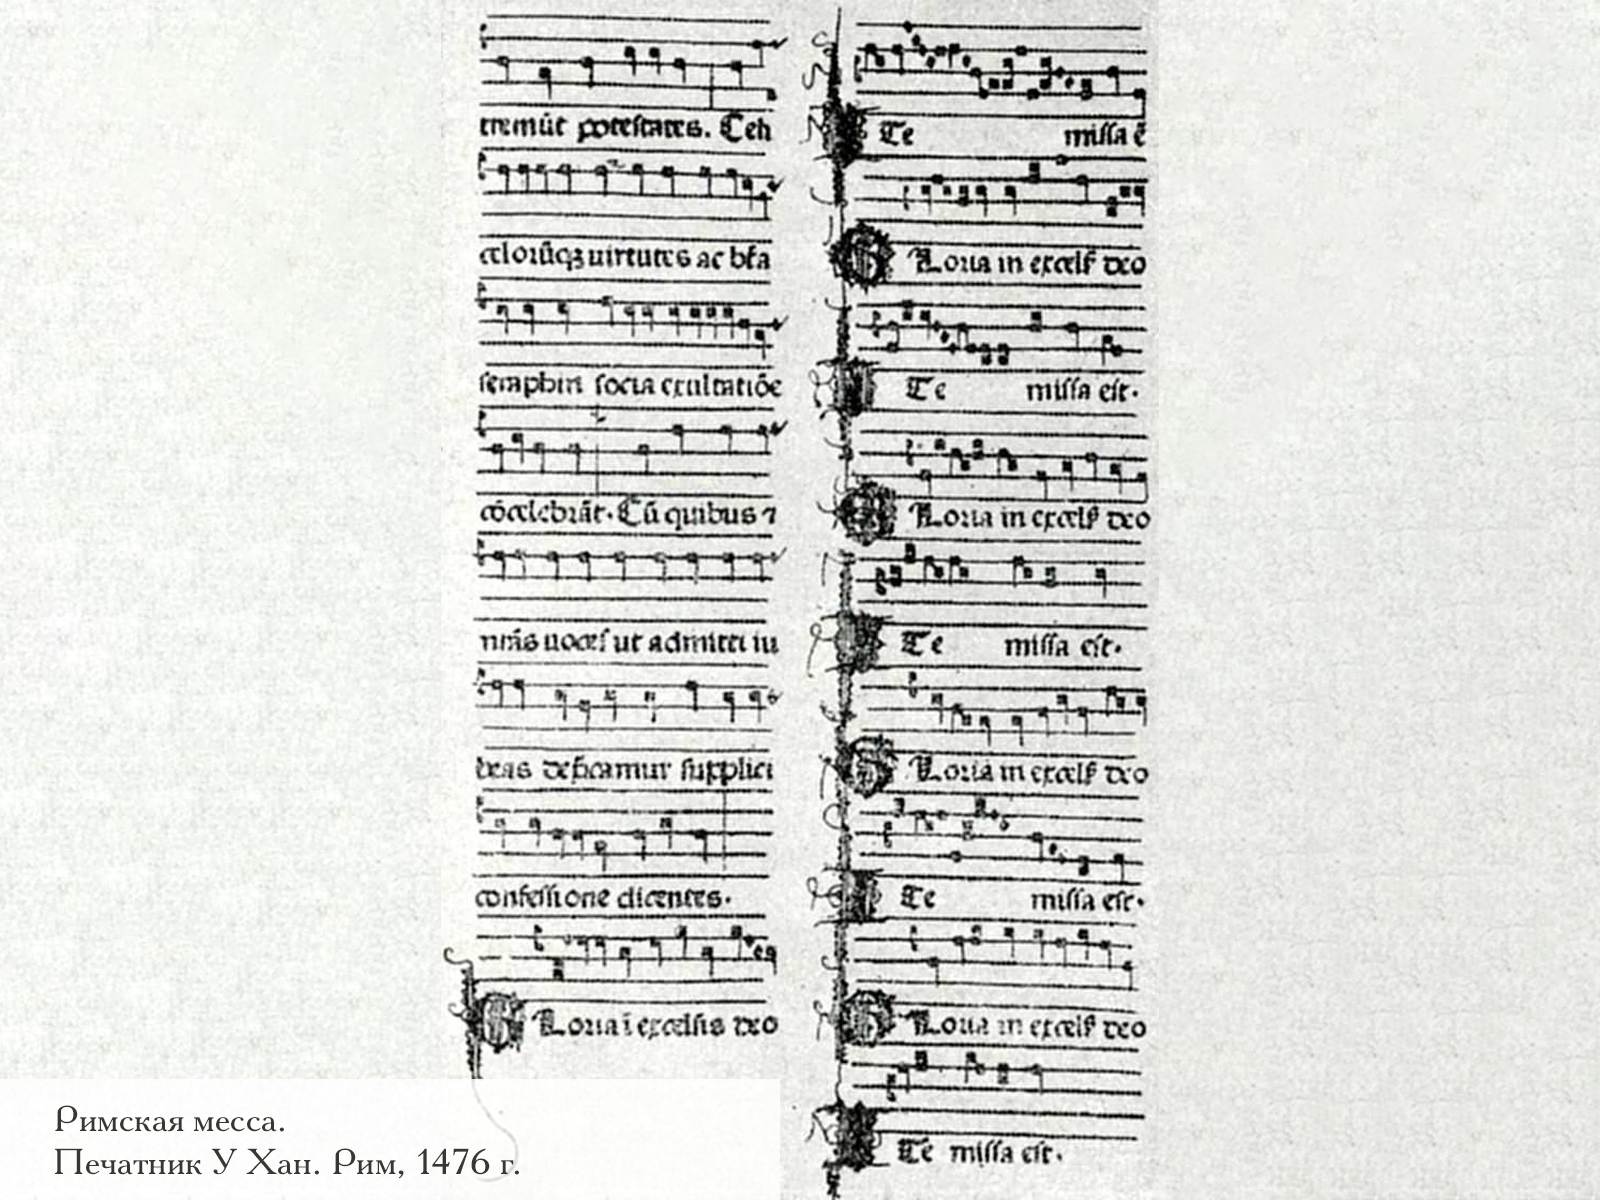 tremūt potestates. Celi
celorūqꝫ uirtutes ac bt̄a
seraphin socia exultatiōe
cōcelebrāt. Cū quibus ⁊
nr̄as uoces ut admitti iu
beas dep̄camur supplici
confessione dicentes.
Gloria ī excelsis deo
Ite missa ē
Gloria in excels̄ deo
Ite missa est.
Gloria in excels̄ deo
Ite missa est.
Gloria in excels̄ deo
Ite missa est.
Gloria in excels̄ deo
Ite missa est.
Римская месса.
Печатник У Хан. Рим, 1476 г.